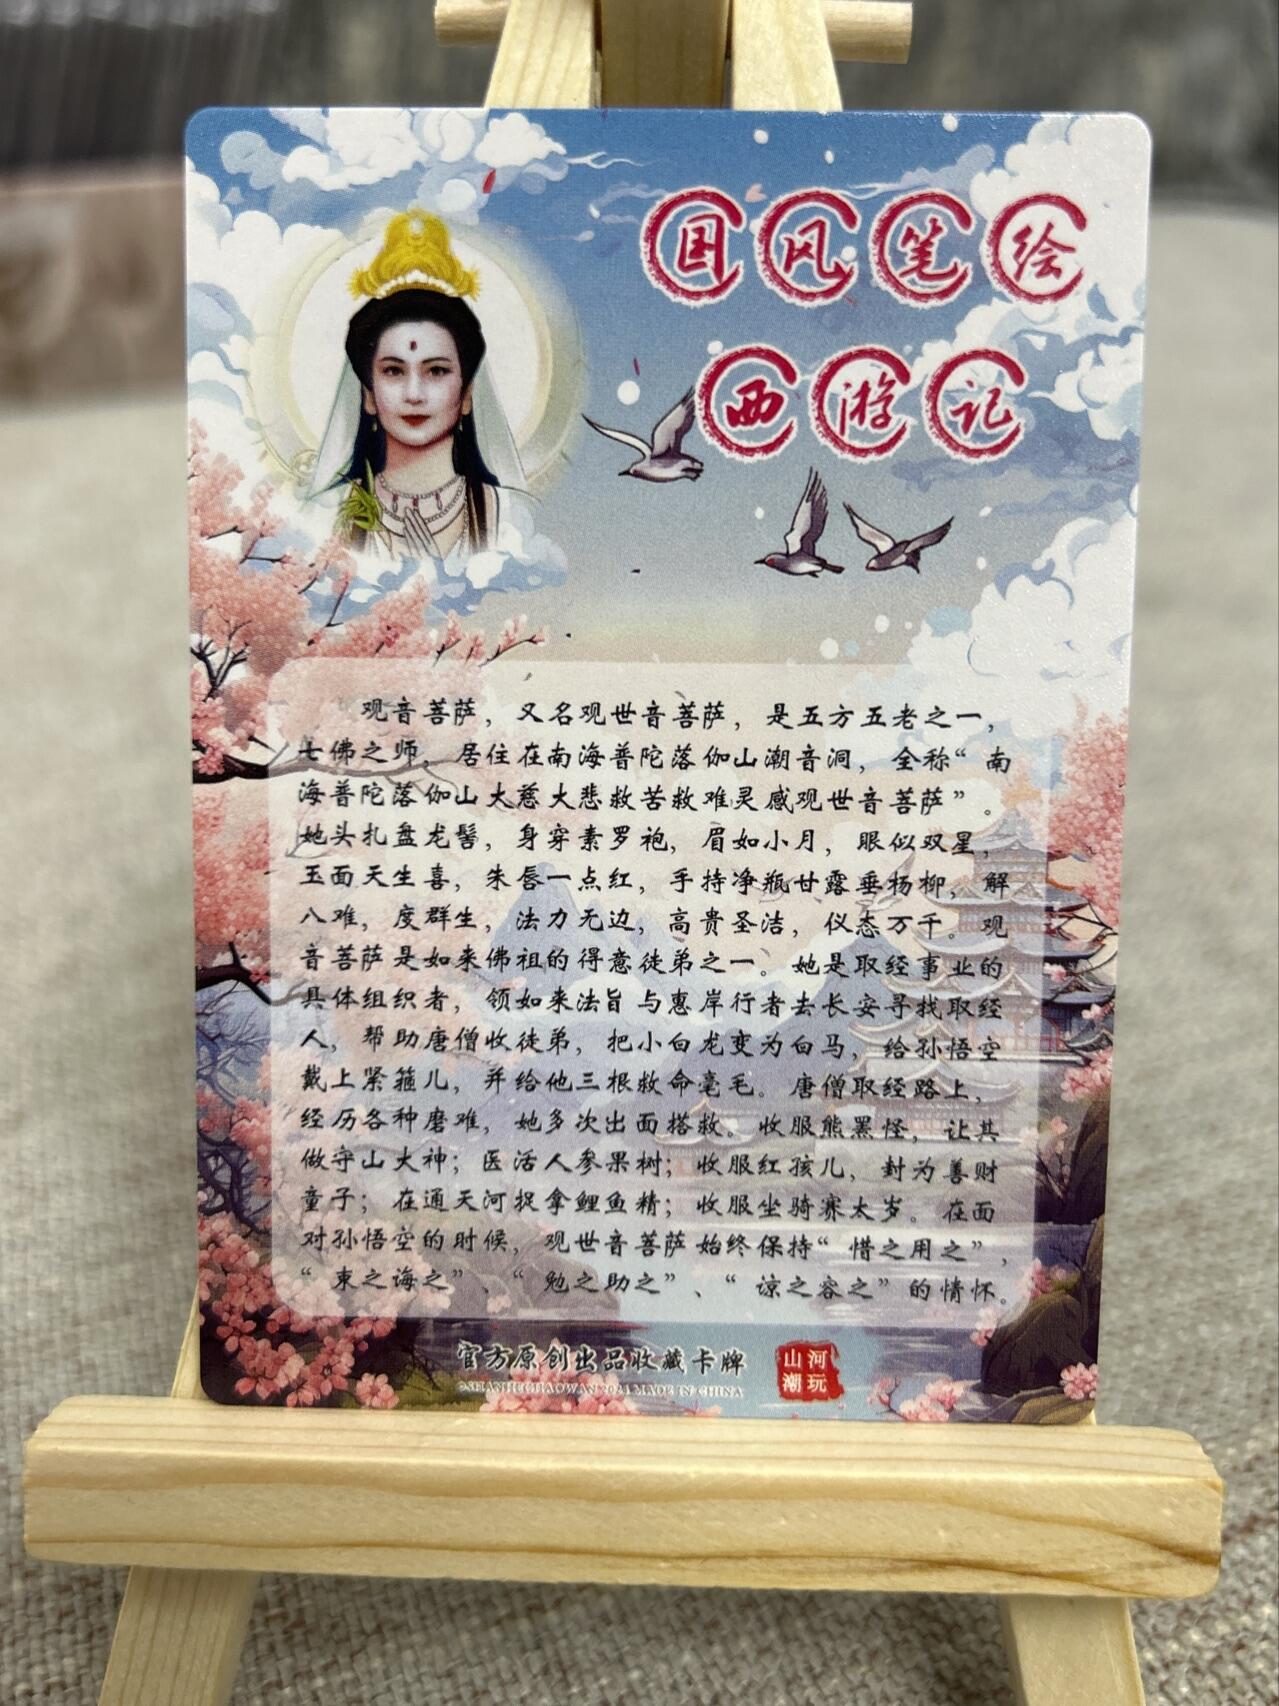 国风笔绘
西游记
观音菩萨，又名观世音菩萨，是五方五老之一，
七佛之师，居住在南海普陀落伽山潮音洞，全称“南
海普陀落伽山大慈大悲救苦救难灵感观世音菩萨”。
她头扎盘龙髻，身穿素罗袍，眉如小月，眼似双星，
玉面天生喜，朱唇一点红，手持净瓶甘露垂杨柳，解
八难，度群生，法力无边，高贵圣洁，仪态万千。观
音菩萨是如来佛祖的得意徒弟之一。她是取经事业的
具体组织者，领如来法旨与惠岸行者去长安寻找取经
人，帮助唐僧收徒弟，把小白龙变为白马，给孙悟空
戴上紧箍儿，并给他三根救命毫毛。唐僧取经路上，
经历各种磨难，她多次出面搭救。收服熊黑怪，让其
做守山大神；医活人参果树；收服红孩儿，封为善财
童子；在通天河捉拿鲤鱼精；收服坐骑赛太岁。在面
对孙悟空的时候，观世音菩萨始终保持“惜之用之”，
“束之诲之”、“勉之助之”、“谅之容之”的情怀。
官方原创出品收藏卡牌
©SHANHECHAOWAN 2024 MADE IN CHINA
山河
潮玩